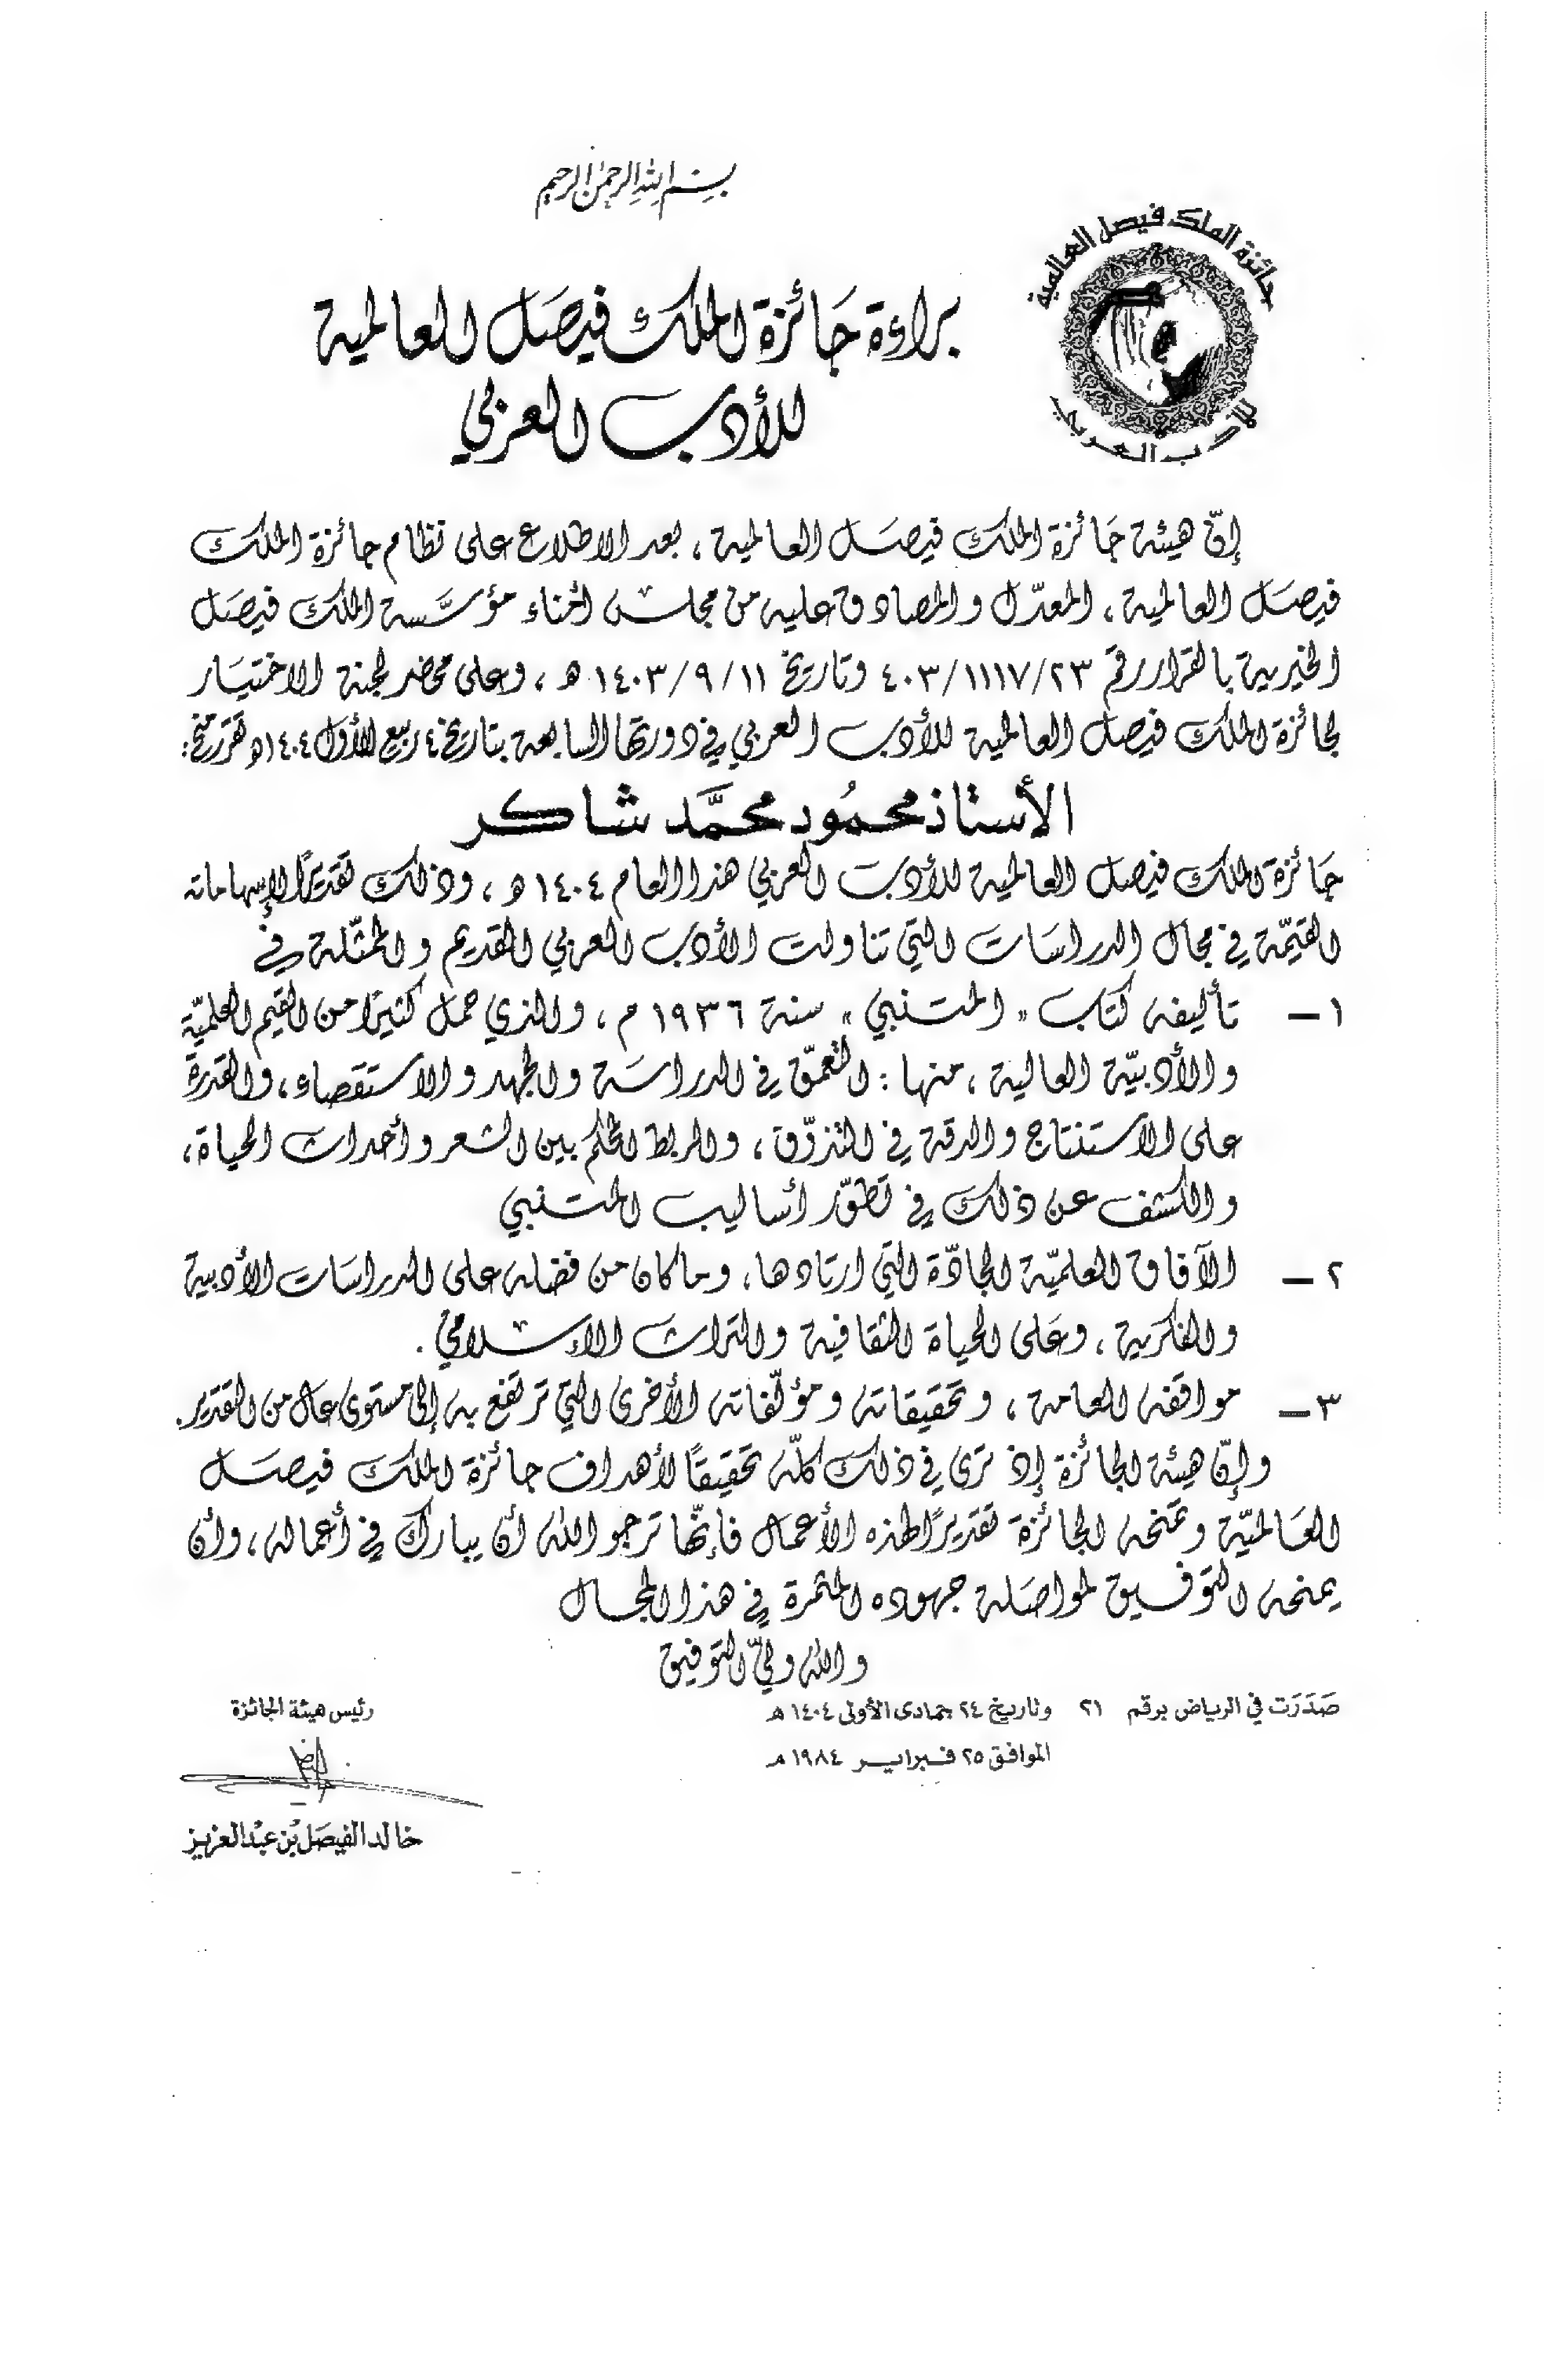 بسم الله الرحمن الرحيم
جائزة الملك فيصل العالمية
للأدب العربي
براءة جَائزة الملك فيصَل العالمية
للأدب العربي
إنّ هيئة جَائزة الملك فيصَل العالمية ، بعد الاطلاع على نظام جائزة الملك
فيصَل العالمية ، المعدّل والمصادق عليه من مجلس أمناء مؤسَّسة الملك فيصَل
الخيرية بالقرار رقم ٤٠٣/١١١٧/٢٣ وتاريخ ١٤٠٣/٩/١١ هـ ، وعلى محضر لجنة الاختيَار
لجائزة الملك فيصل العالمية للأدب العربي في دورتها السابعة بتاريخ ٤ ربيع الأول ١٤٠٤هـ تقرر منح :
الأستاذ محمُود محمَّد شاكر
جَائزة الملك فيصل العالمية للأدب العربي هذا العام ١٤٠٤ هـ ، وذلك تقديرًا لإسهاماته
القيّمة في مجال الدراسَات التي تناولت الأدب العربي القديم والمتمثّلة في
١ – تأليفه كتاب « المتنبي » سنة ١٩٣٦ م ، والذي حمل كثيرًا من القيم العلميّة
والأدبيّة العالية ، منها : التعمّق في الدراسَة والجهد والاستقصاء ، والقدرة
على الاستنتاج والدقة في التذوّق ، والربط المحكم بين الشعر وأحداث الحياة ،
والكشف عن ذلك في تطوّر أساليب المتنبي
٢ – الآفاق العلميّة الجادّة التي ارتادها ، وما كان من فضله على الدراسَات الأدبية
والفكرية ، وعَلى الحياة الثقافية والتراث الإسلامي .
٣ – مواقفه العامة ، وتحقيقاته ومؤلّفاته الأخرى التي ترتفع به إلى مستوى عال من التقدير .
وإنّ هيئة الجائزة إذ ترى في ذلك كلّه تحقيقًا لأهداف جائزة الملك فيصَل
العَالميّة وتمنحه الجائزة تقديرًا لهذه الأعمال فإنّها ترجو الله أن يبارك في أعماله ، وأن
يمنحه التوفيق لمواصَلة جهوده المثمرة في هذا المجال
والله وليّ التوفيق
صَدَرَت في الرياض برقم ٢١ وتاريخ ٢٤ جمادى الأولى ١٤٠٤ هـ
الموافق ٢٥ فبراير ١٩٨٤ م
رئيس هيئة الجائزة
خالد الفيصَل بْن عبْد العزيز